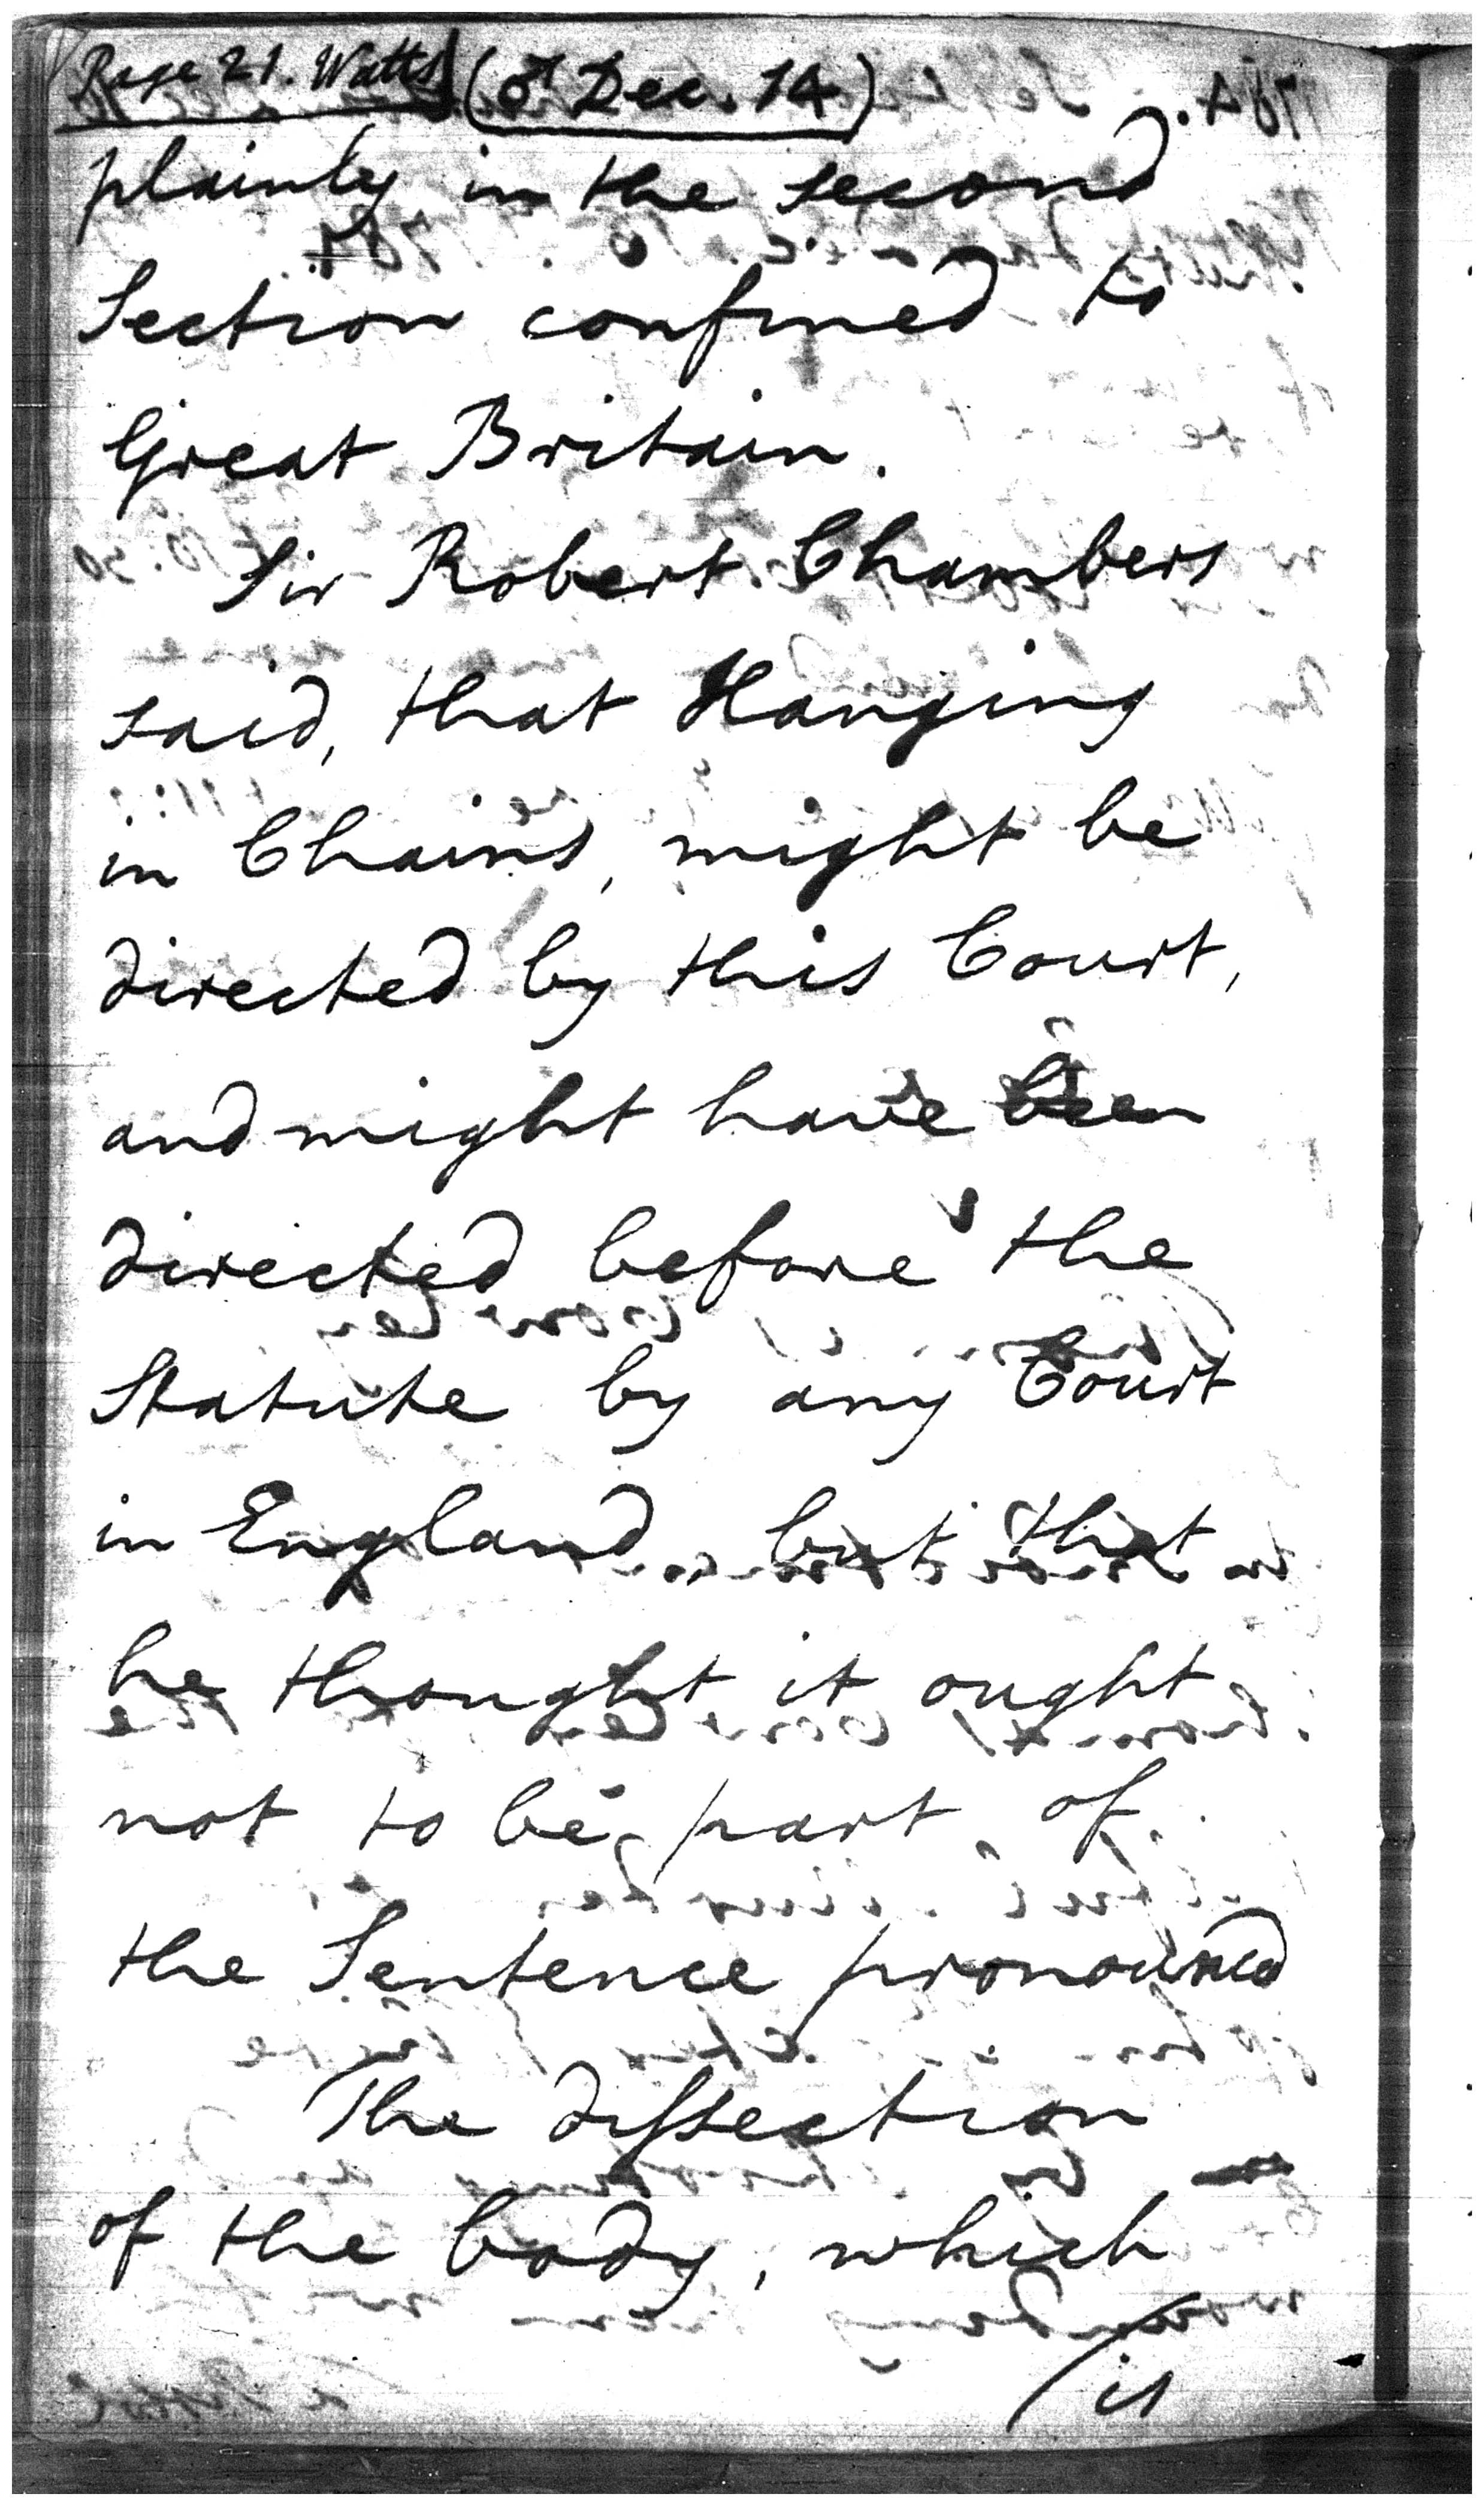 Page 21. Watts (♂ Dec. 14)
plainly in the second
Section confined to
Great Britain.
Sir Robert Chambers
said, that Hanging
in Chains, might be
directed by this Court,
and might have been
directed before the
Statute by any Court
in England, but that
he thought it ought
not to be part of
the Sentence pronounced
The dissection
of the body, which
/is